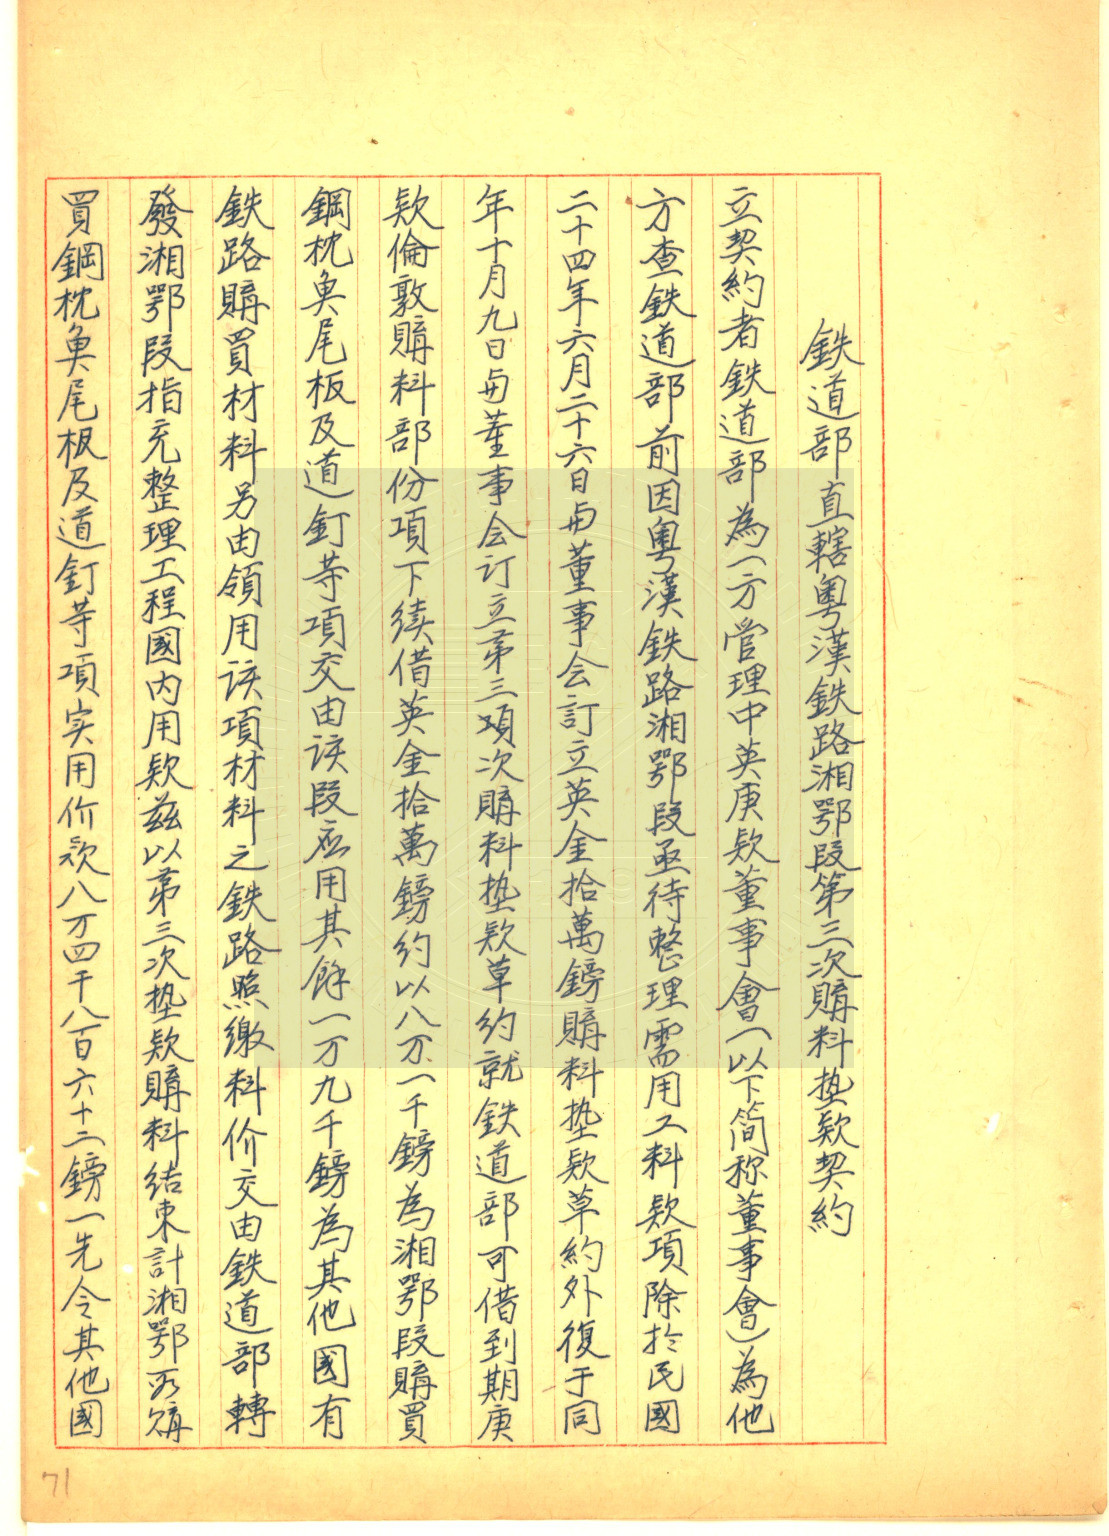 鉄道部直轄粵漢鉄路湘鄂段第三次購料墊欵契約
立契約者鉄道部為一方管理中英庚欵董事會(以下简称董事會)為他
方查鉄道部前因粵漢鉄路湘鄂段亟待整理需用工料欵項除於民國
二十四年六月二十六日與董事会訂立英金拾萬鎊購料墊欵草約外復于同
年十月九日與董事会订立第三項次購料墊欵草約就鉄道部可借到期庚
欵倫敦購料部份項下续借英金拾萬鎊約以八万一千鎊為湘鄂段購買
鋼枕魚尾板及道釘等項交由该段应用其餘一万九千鎊為其他國有
鉄路購買材料另由領用该項材料之鉄路照缴料价交由鉄道部轉
發湘鄂段指充整理工程國内用欵兹以第三次墊欵購料结束計湘鄂所購
買鋼枕魚尾板及道釘等項实用价欵八万四千八百六十二鎊一先令其他國
71